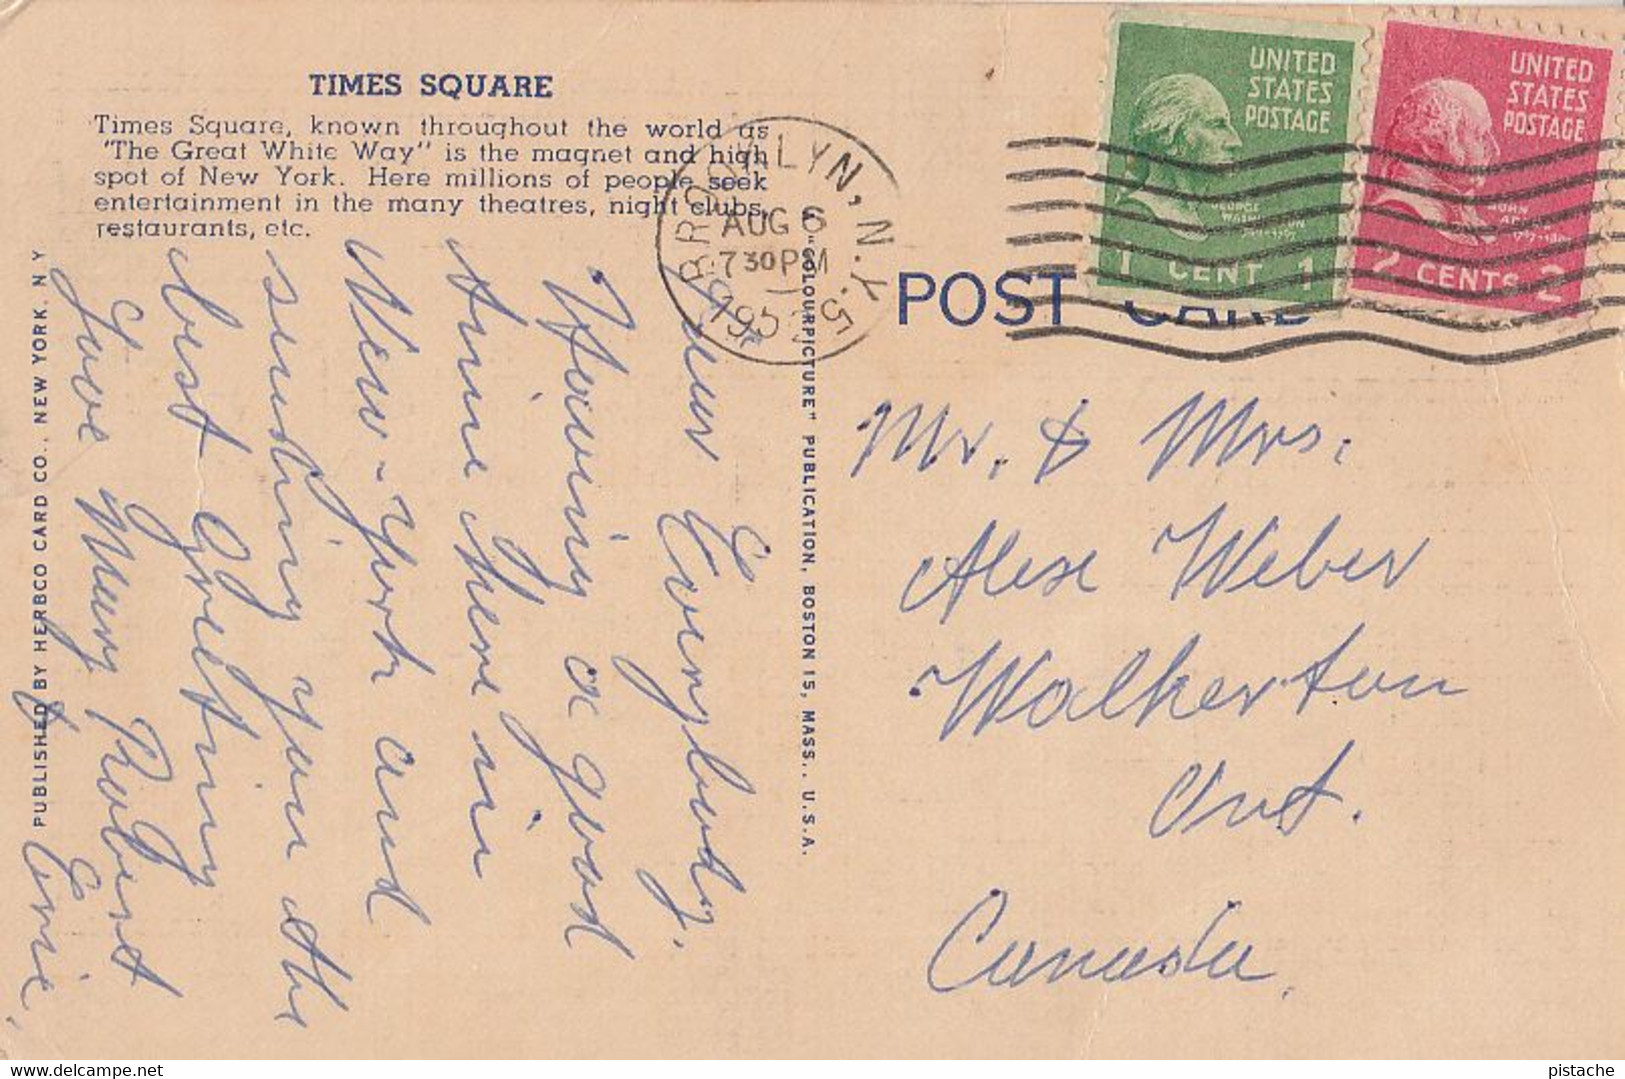 TIMES SQUARE
Times Square, known throughout the world as
"The Great White Way" is the magnet and high
spot of New York. Here millions of people seek
entertainment in the many theatres, night clubs,
restaurants, etc.
Dear Everybody,
Having a good
time here in
New-York and
sending you the
best Greetings
Love Mary Robert
& Ernie.
PUBLISHED BY HERBCO CARD CO., NEW YORK, N Y
"COLOURPICTURE" PUBLICATION, BOSTON 15, MASS., U.S.A.
BROOKLYN, N.Y.
AUG 6
7 30 PM
POST CARD
UNITED
STATES
POSTAGE
GEORGE
1 CENT 1
UNITED
STATES
POSTAGE
JOHN
2 CENTS 2
Mr. & Mrs.
Alex Weber
Walkerton
Ont.
Canada.
delcampe.net
pistache